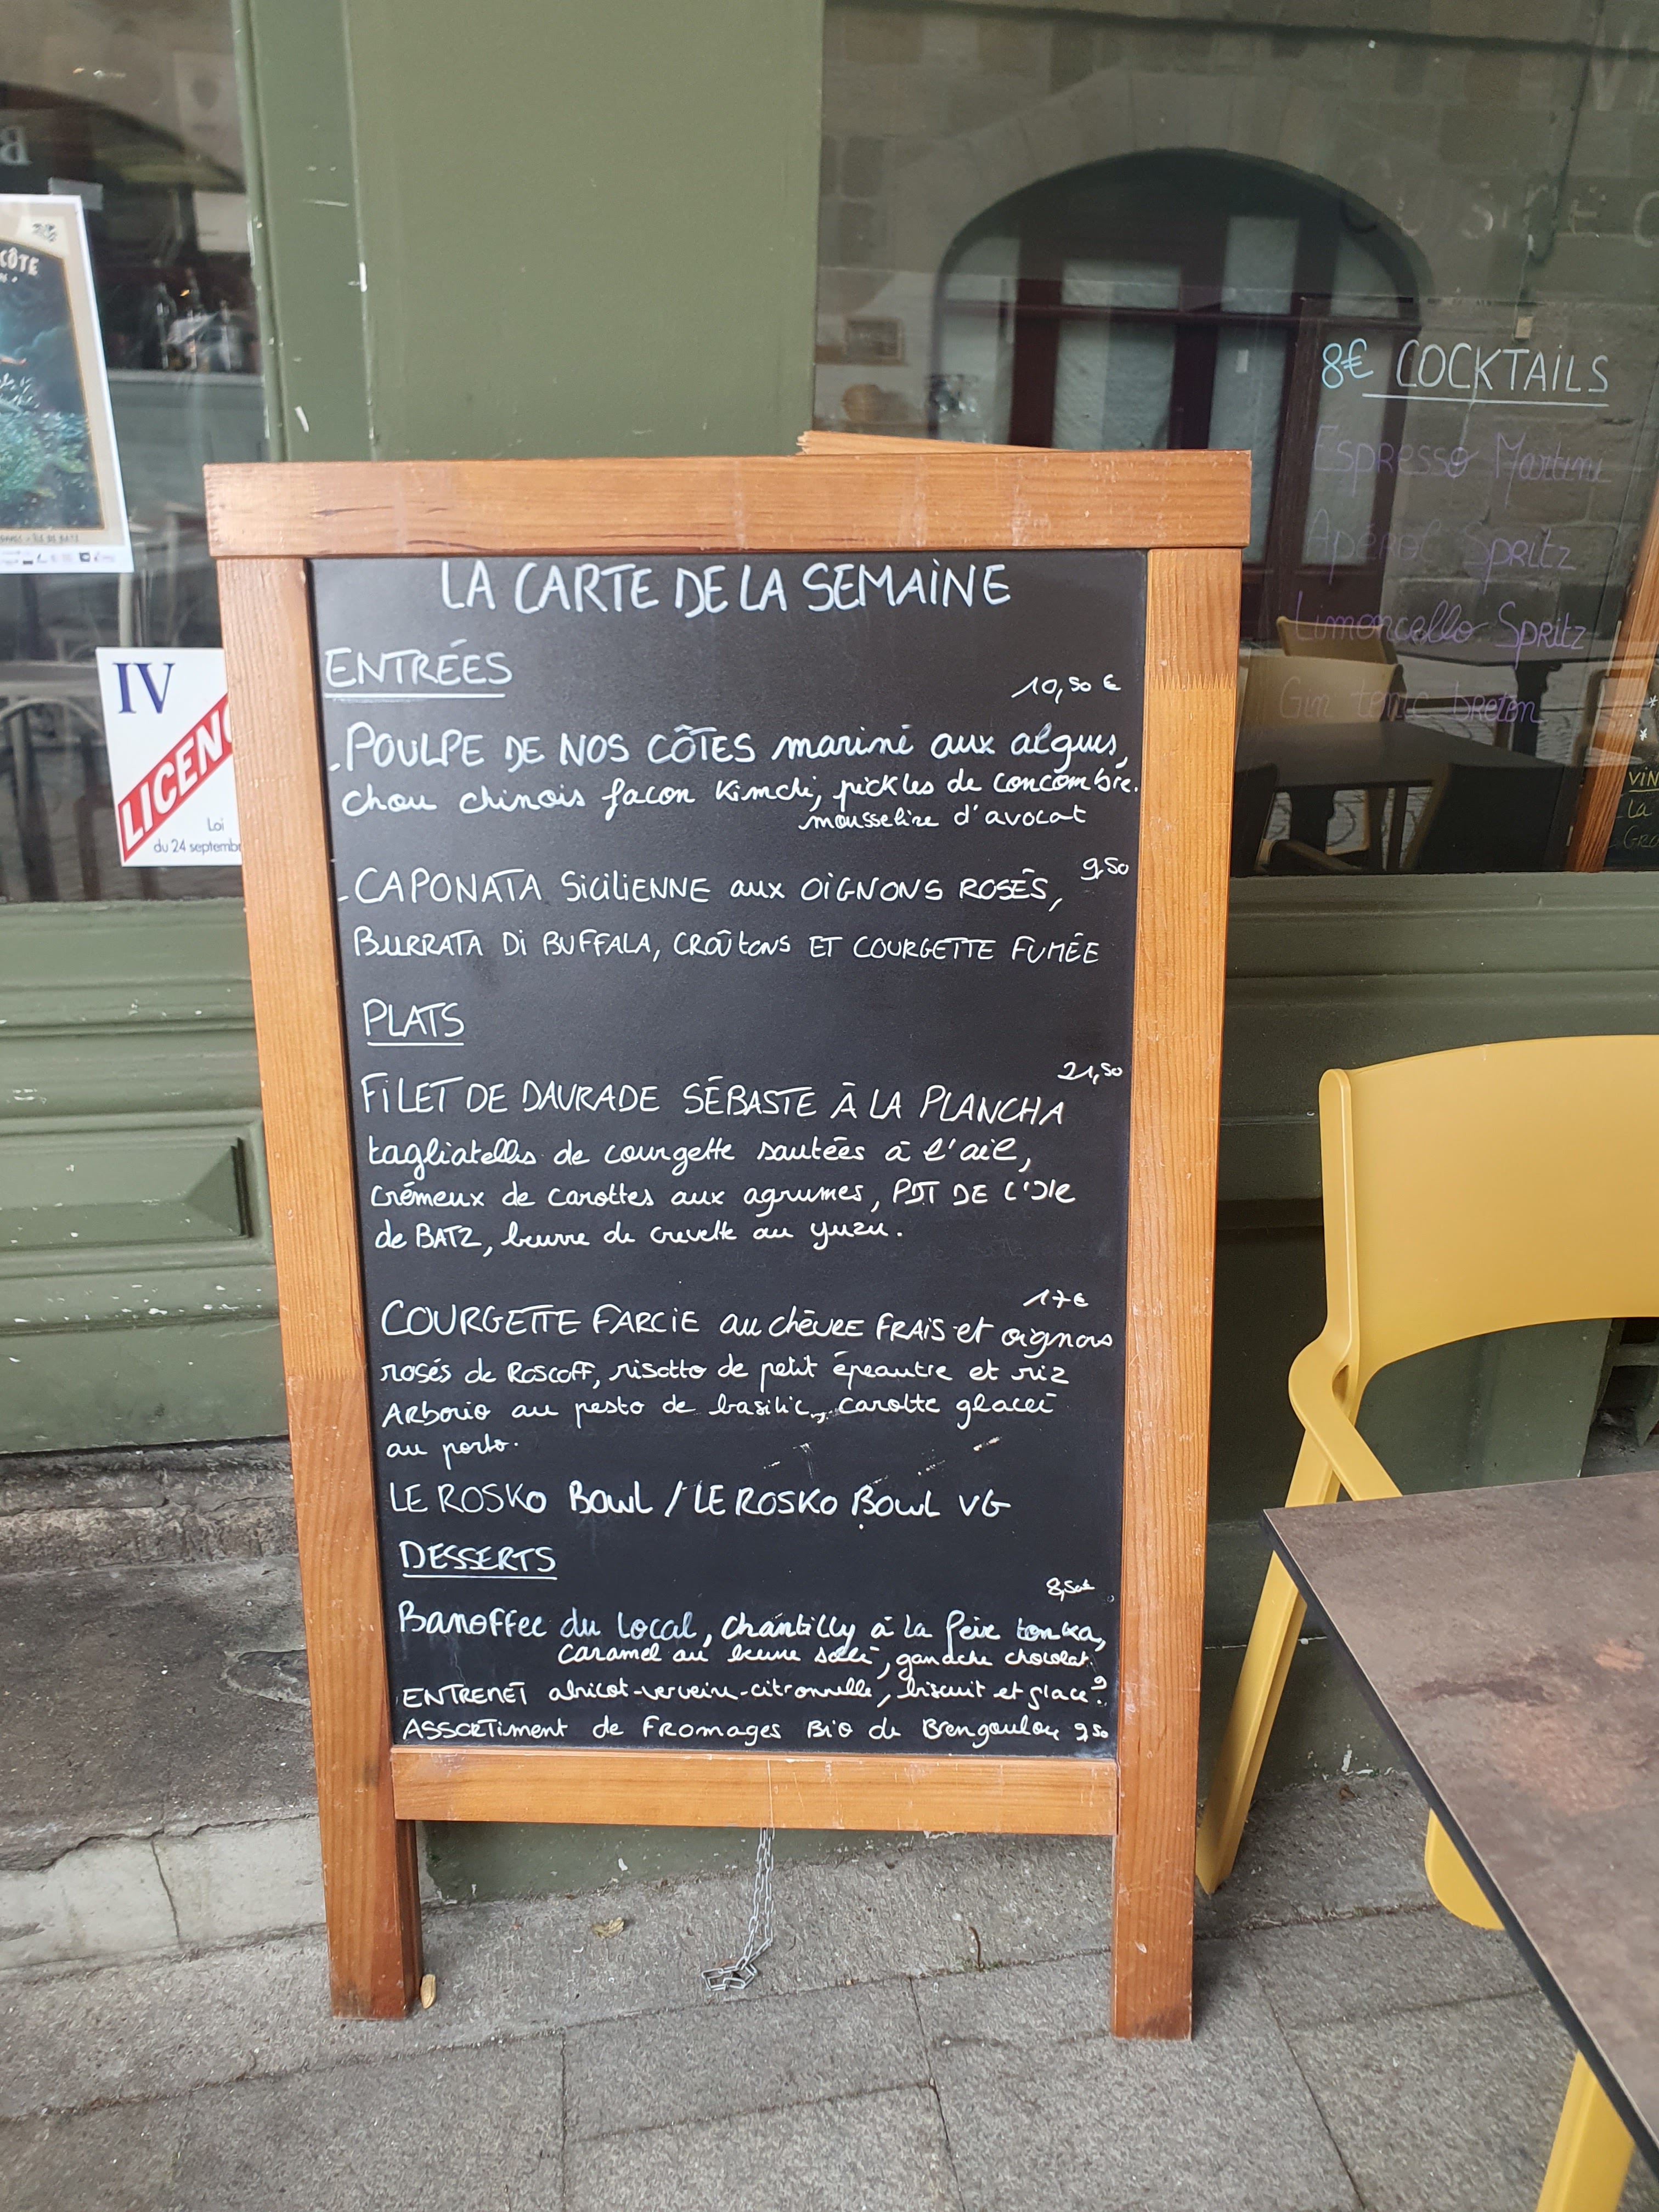 CÔTE
IV
LICENC
Loi
du 24 septemb
8€ COCKTAILS
Espresso Martini
Apérol Spritz
Limoncello Spritz
Gin tonic breton
VIN
La
LA CARTE DE LA SEMAINE
ENTRÉES
10,50 €
- POULPE DE NOS CÔTES mariné aux algues,
chou chinois façon Kimchi, pickles de concombre.
mousseline d'avocat
9,50
- CAPONATA SiciliENNE aux OIGNONS ROSÉS,
BURRATA Di BUFFALA, CROÛtONS ET COURGETTE FUMÉE
PLATS
21,50
FILET DE DAURADE SÉBASTE À LA PLANCHA
tagliatelles de courgette sautées à l'ail,
Crémeux de carottes aux agrumes, PDT DE L'Ile
de BATZ, beurre de crevette au yuzu.
17€
COURGETTE FARCIE au chèvRE FRAIS et oignons
rosés de Roscoff, risotto de petit épeautre et riz
Arborio au pesto de basilic, carotte glacée
au porto.
LE ROSKO Bowl / LE ROSKO Bowl VG
DESSERTS
8,50€
Banoffee du Local, Chantilly à la fève tonka,
Caramel au beurre salé, ganache chocolat.
ENTREMET abricot-verveine-citronnelle, biscuit et glace 9
ASSORTiment de Fromages Bio de Brengoulou 9,50